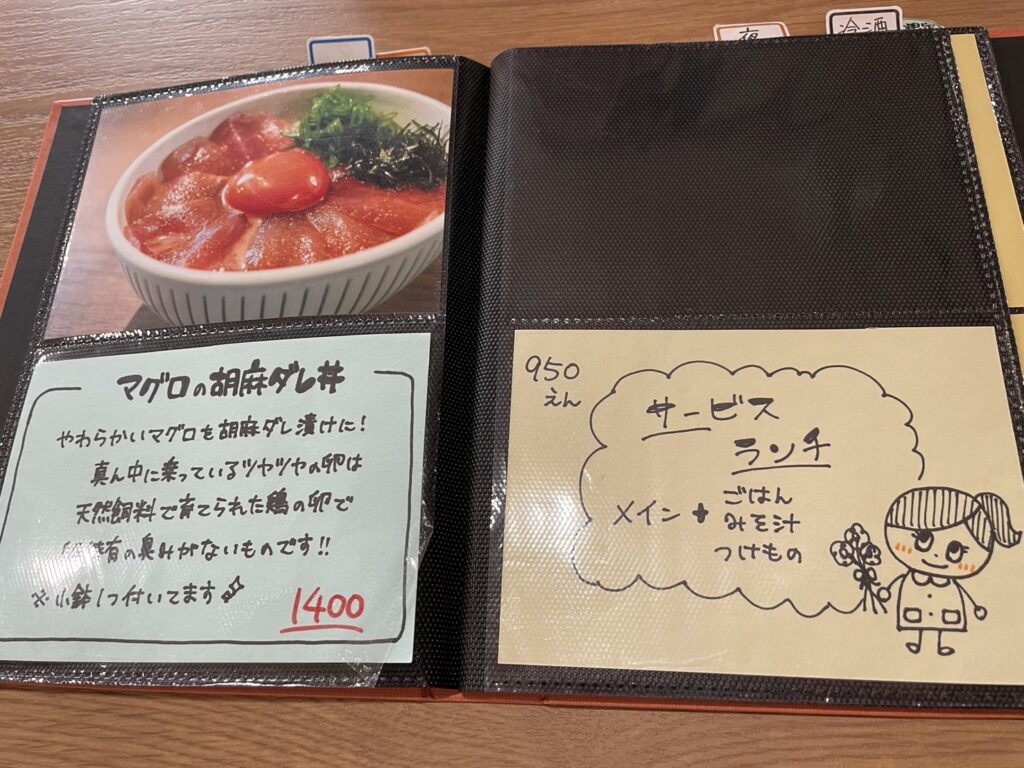 夜
冷酒
マグロの胡麻ダレ丼
やわらかいマグロを胡麻ダレ漬けに!
真ん中に乗っているツヤツヤの卵は
天然飼料で育てられた鶏の卵で
有の臭みがないものです!!
※小鉢1つ付いてます
1400
950
えん
サービス
ランチ
メイン+
ごはん
みそ汁
つけもの